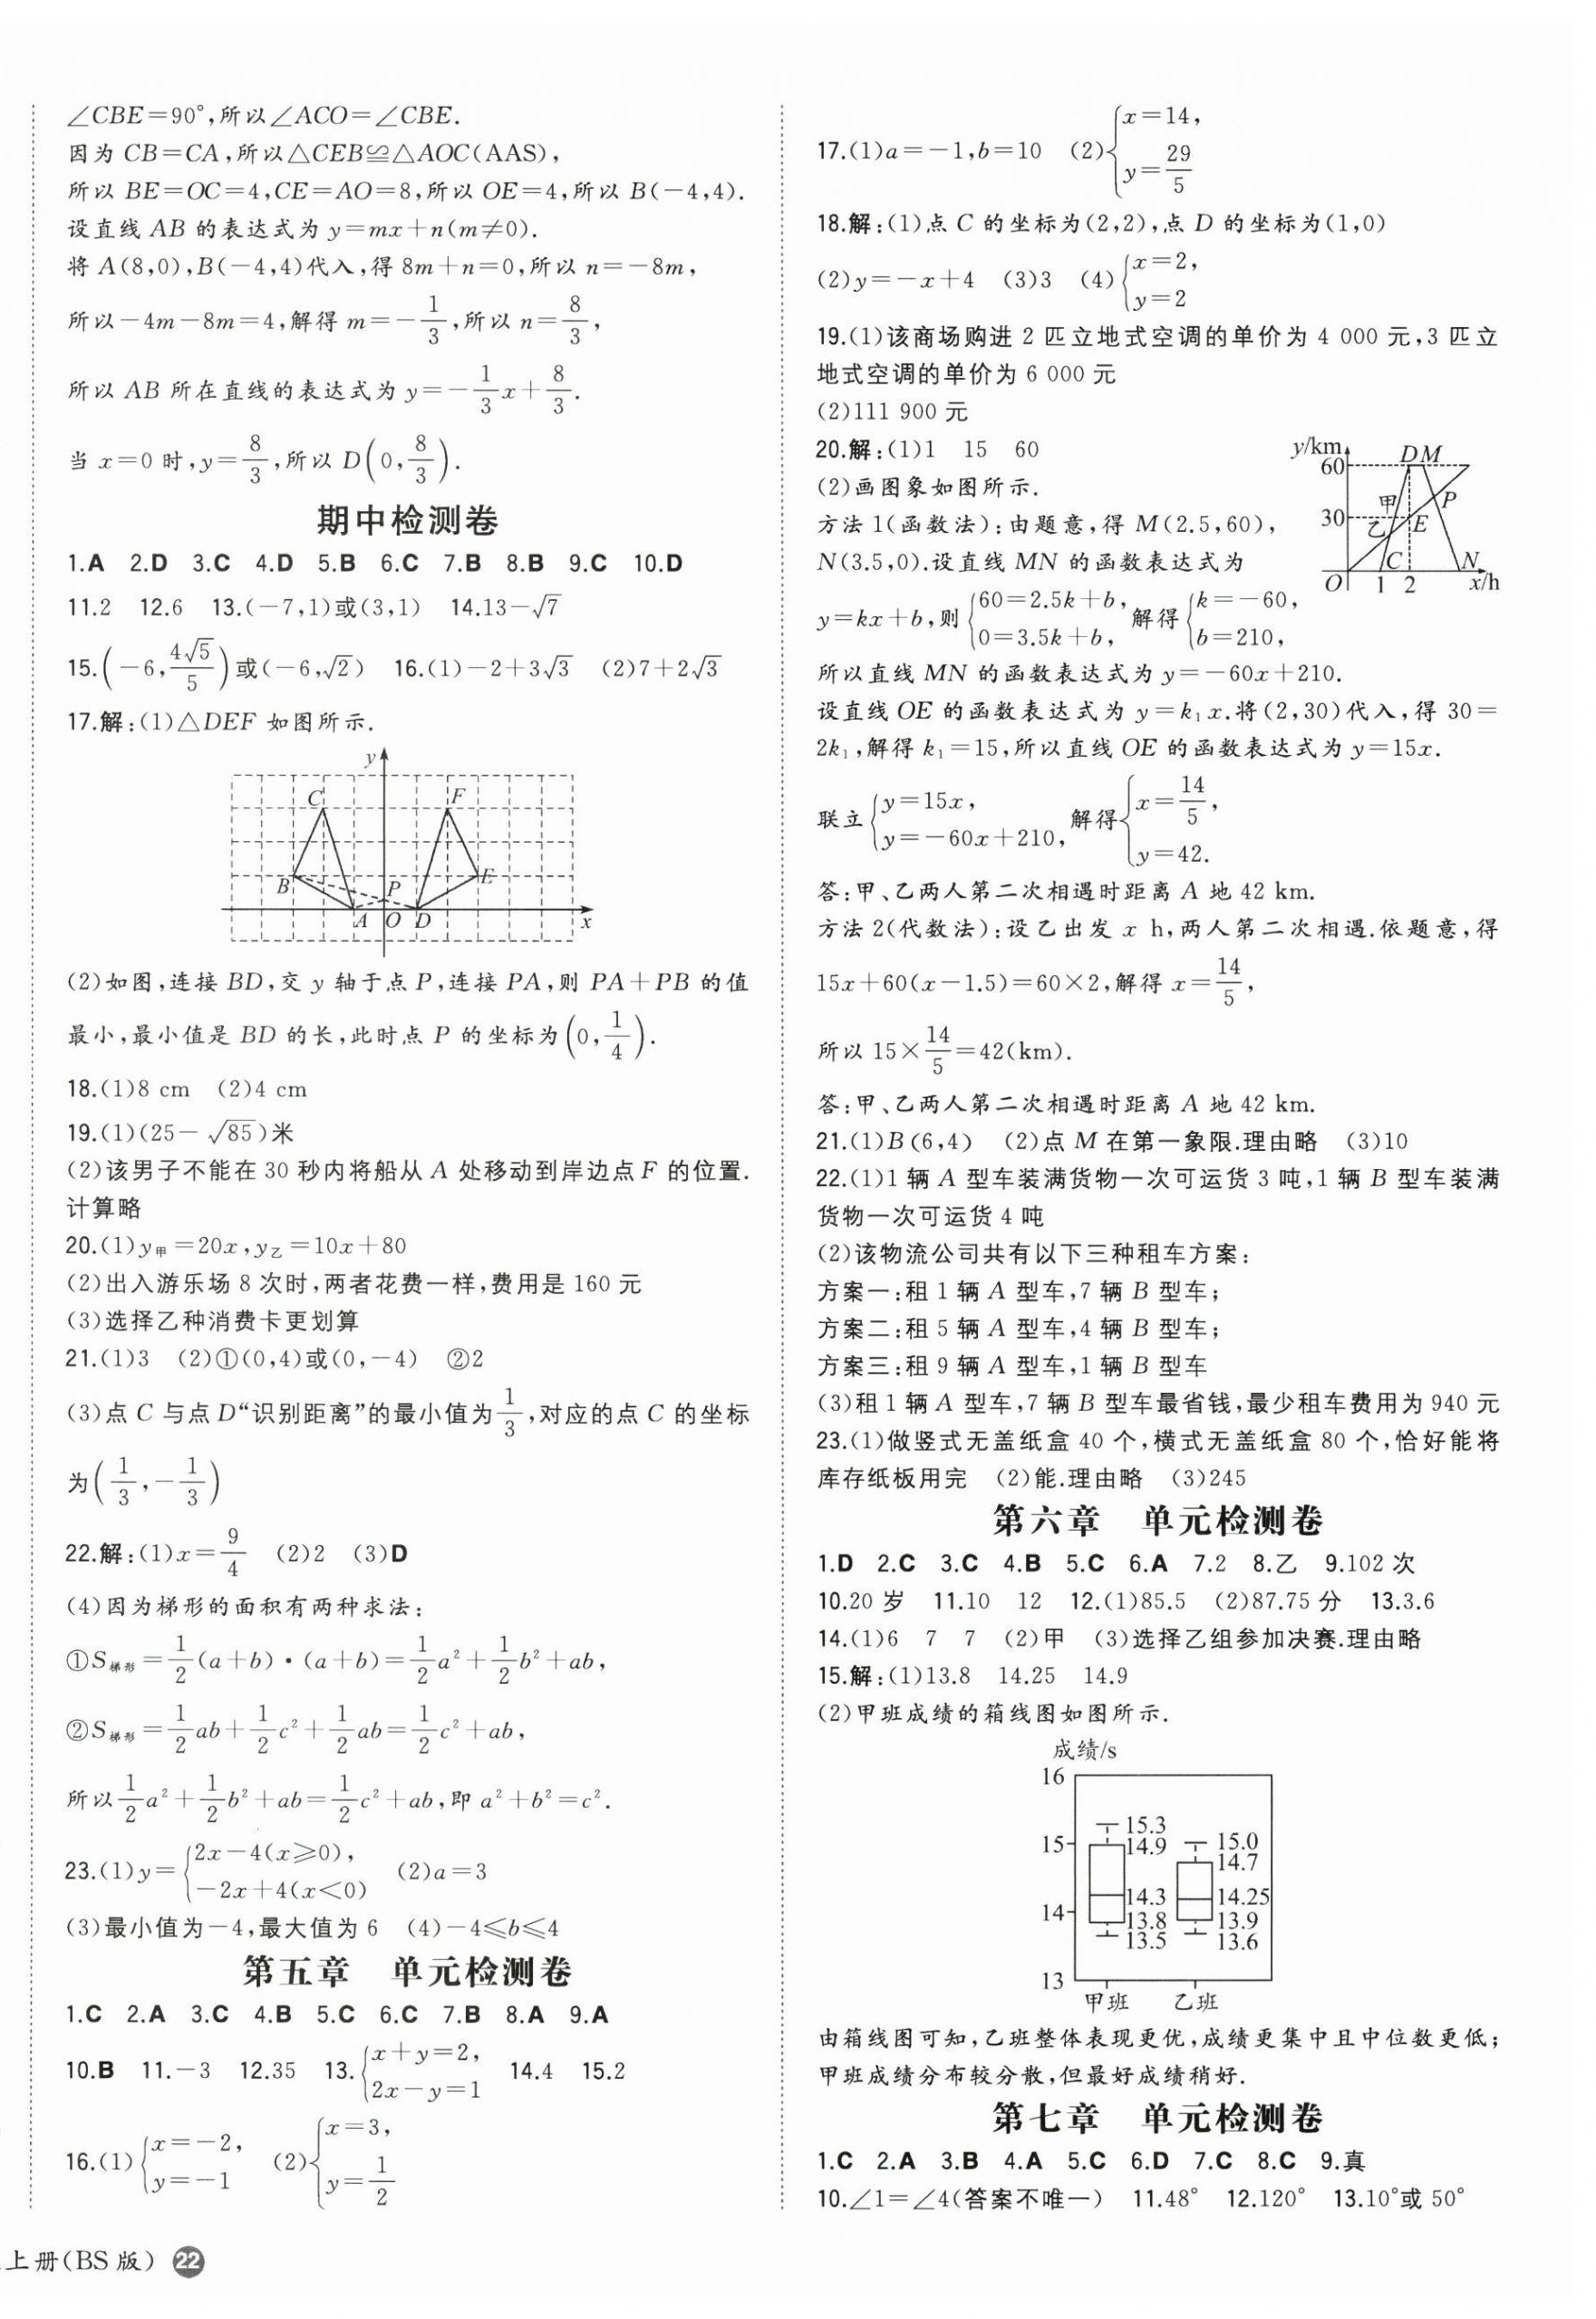 ∠CBE=90°,所以∠ACO=∠CBE.
因为 CB=CA,所以△CEB≌△AOC(AAS),
所以 BE=OC=4,CE=AO=8,所以 OE=4,所以 B(-4,4).
设直线 AB 的表达式为 y=mx+n(m≠0).
将 A(8,0),B(-4,4)代入,得 8m+n=0,所以 n=-8m,
所以-4m-8m=4,解得 m=-1/3,所以 n=8/3,
所以 AB 所在直线的表达式为 y=-1/3x+8/3.
当 x=0 时,y=8/3,所以 D(0,8/3).
期中检测卷
1.A 2.D 3.C 4.D 5.B 6.C 7.B 8.B 9.C 10.D
11.2 12.6 13.(-7,1)或(3,1) 14.13-√7
15.(-6,4√5/5)或(-6,√2) 16.(1)-2+3√3 (2)7+2√3
17.解:(1)△DEF 如图所示.
y
C F
B E
P
A O D x
(2)如图,连接 BD,交 y 轴于点 P,连接 PA,则 PA+PB 的值
最小,最小值是 BD 的长,此时点 P 的坐标为(0,1/4).
18.(1)8 cm (2)4 cm
19.(1)(25-√85)米
(2)该男子不能在 30 秒内将船从 A 处移动到岸边点 F 的位置.
计算略
20.(1)y甲=20x,y乙=10x+80
(2)出入游乐场 8 次时,两者花费一样,费用是 160 元
(3)选择乙种消费卡更划算
21.(1)3 (2)①(0,4)或(0,-4) ②2
(3)点 C 与点 D“识别距离”的最小值为1/3,对应的点 C 的坐标
为(1/3,-1/3)
22.解:(1)x=9/4 (2)2 (3)D
(4)因为梯形的面积有两种求法:
①S梯形=1/2(a+b)·(a+b)=1/2a²+1/2b²+ab,
②S梯形=1/2ab+1/2c²+1/2ab=1/2c²+ab,
所以1/2a²+1/2b²+ab=1/2c²+ab,即 a²+b²=c².
23.(1)y={2x-4(x≥0), -2x+4(x<0) (2)a=3
(3)最小值为-4,最大值为 6 (4)-4≤b≤4
第五章 单元检测卷
1.C 2.A 3.C 4.B 5.C 6.C 7.B 8.A 9.A
10.B 11.-3 12.35 13.{x+y=2, 2x-y=1 14.4 15.2
16.(1){x=-2, y=-1 (2){x=3, y=1/2
上册(BS 版) 22
17.(1)a=-1,b=10 (2){x=14, y=29/5
18.解:(1)点 C 的坐标为(2,2),点 D 的坐标为(1,0)
(2)y=-x+4 (3)3 (4){x=2, y=2
19.(1)该商场购进 2 匹立地式空调的单价为 4 000 元,3 匹立
地式空调的单价为 6 000 元
(2)111 900 元
20.解:(1)1 15 60
(2)画图象如图所示.
方法 1(函数法):由题意,得 M(2.5,60),
N(3.5,0).设直线 MN 的函数表达式为
y=kx+b,则{60=2.5k+b, 0=3.5k+b, 解得{k=-60, b=210,
y/km
60 D M
甲 P
30 乙 E
C N
O 1 2 x/h
所以直线 MN 的函数表达式为 y=-60x+210.
设直线 OE 的函数表达式为 y=k₁x.将(2,30)代入,得 30=
2k₁,解得 k₁=15,所以直线 OE 的函数表达式为 y=15x.
联立{y=15x, y=-60x+210, 解得{x=14/5, y=42.
答:甲、乙两人第二次相遇时距离 A 地 42 km.
方法 2(代数法):设乙出发 x h,两人第二次相遇.依题意,得
15x+60(x-1.5)=60×2,解得 x=14/5,
所以 15×14/5=42(km).
答:甲、乙两人第二次相遇时距离 A 地 42 km.
21.(1)B(6,4) (2)点 M 在第一象限.理由略 (3)10
22.(1)1 辆 A 型车装满货物一次可运货 3 吨,1 辆 B 型车装满
货物一次可运货 4 吨
(2)该物流公司共有以下三种租车方案:
方案一:租 1 辆 A 型车,7 辆 B 型车;
方案二:租 5 辆 A 型车,4 辆 B 型车;
方案三:租 9 辆 A 型车,1 辆 B 型车
(3)租 1 辆 A 型车,7 辆 B 型车最省钱,最少租车费用为 940 元
23.(1)做竖式无盖纸盒 40 个,横式无盖纸盒 80 个,恰好能将
库存纸板用完 (2)能.理由略 (3)245
第六章 单元检测卷
1.D 2.C 3.C 4.B 5.C 6.A 7.2 8.乙 9.102 次
10.20 岁 11.10 12 12.(1)85.5 (2)87.75 分 13.3.6
14.(1)6 7 7 (2)甲 (3)选择乙组参加决赛.理由略
15.解:(1)13.8 14.25 14.9
(2)甲班成绩的箱线图如图所示.
成绩/s
16
15.3
15 14.9 15.0
14.7
14.3 14.25
14 13.8 13.9
13.5 13.6
13
甲班 乙班
由箱线图可知,乙班整体表现更优,成绩更集中且中位数更低;
甲班成绩分布较分散,但最好成绩稍好.
第七章 单元检测卷
1.C 2.A 3.B 4.A 5.C 6.D 7.C 8.C 9.真
10.∠1=∠4(答案不唯一) 11.48° 12.120° 13.10°或 50°